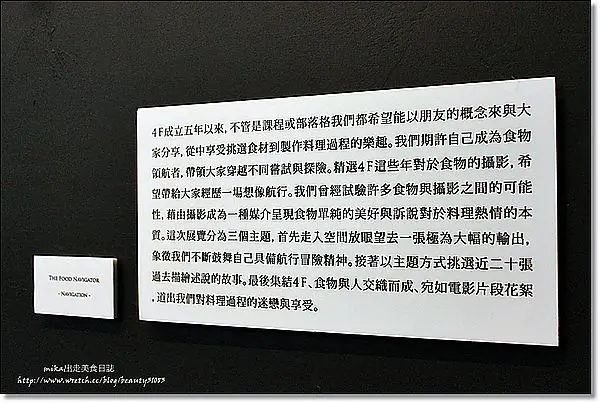 4F成立五年以來，不管是課程或部落格我們都希望能以朋友的概念來與大
家分享，從中享受挑選食材到製作料理過程的樂趣。我們期許自己成為食物
領航者，帶領大家穿越不同嘗試與探險。精選4F這些年對於食物的攝影，希
望帶給大家經歷一場想像航行。我們曾經試驗許多食物與攝影之間的可能
性，藉由攝影成為一種媒介呈現食物單純的美好與訴說對於料理熱情的本
質。這次展覽分為三個主題，首先走入空間放眼望去一張極為大幅的輸出，
象徵我們不斷鼓舞自己具備航行冒險精神。接著以主題方式挑選近二十張
過去描繪述說的故事。最後集結4F、食物與人交織而成、宛如電影片段花絮
，道出我們對料理過程的迷戀與享受。
THE FOOD NAVIGATOR
- NAVIGATION -
mika出走美食日誌
http://www.wretch.cc/blog/beauty31083